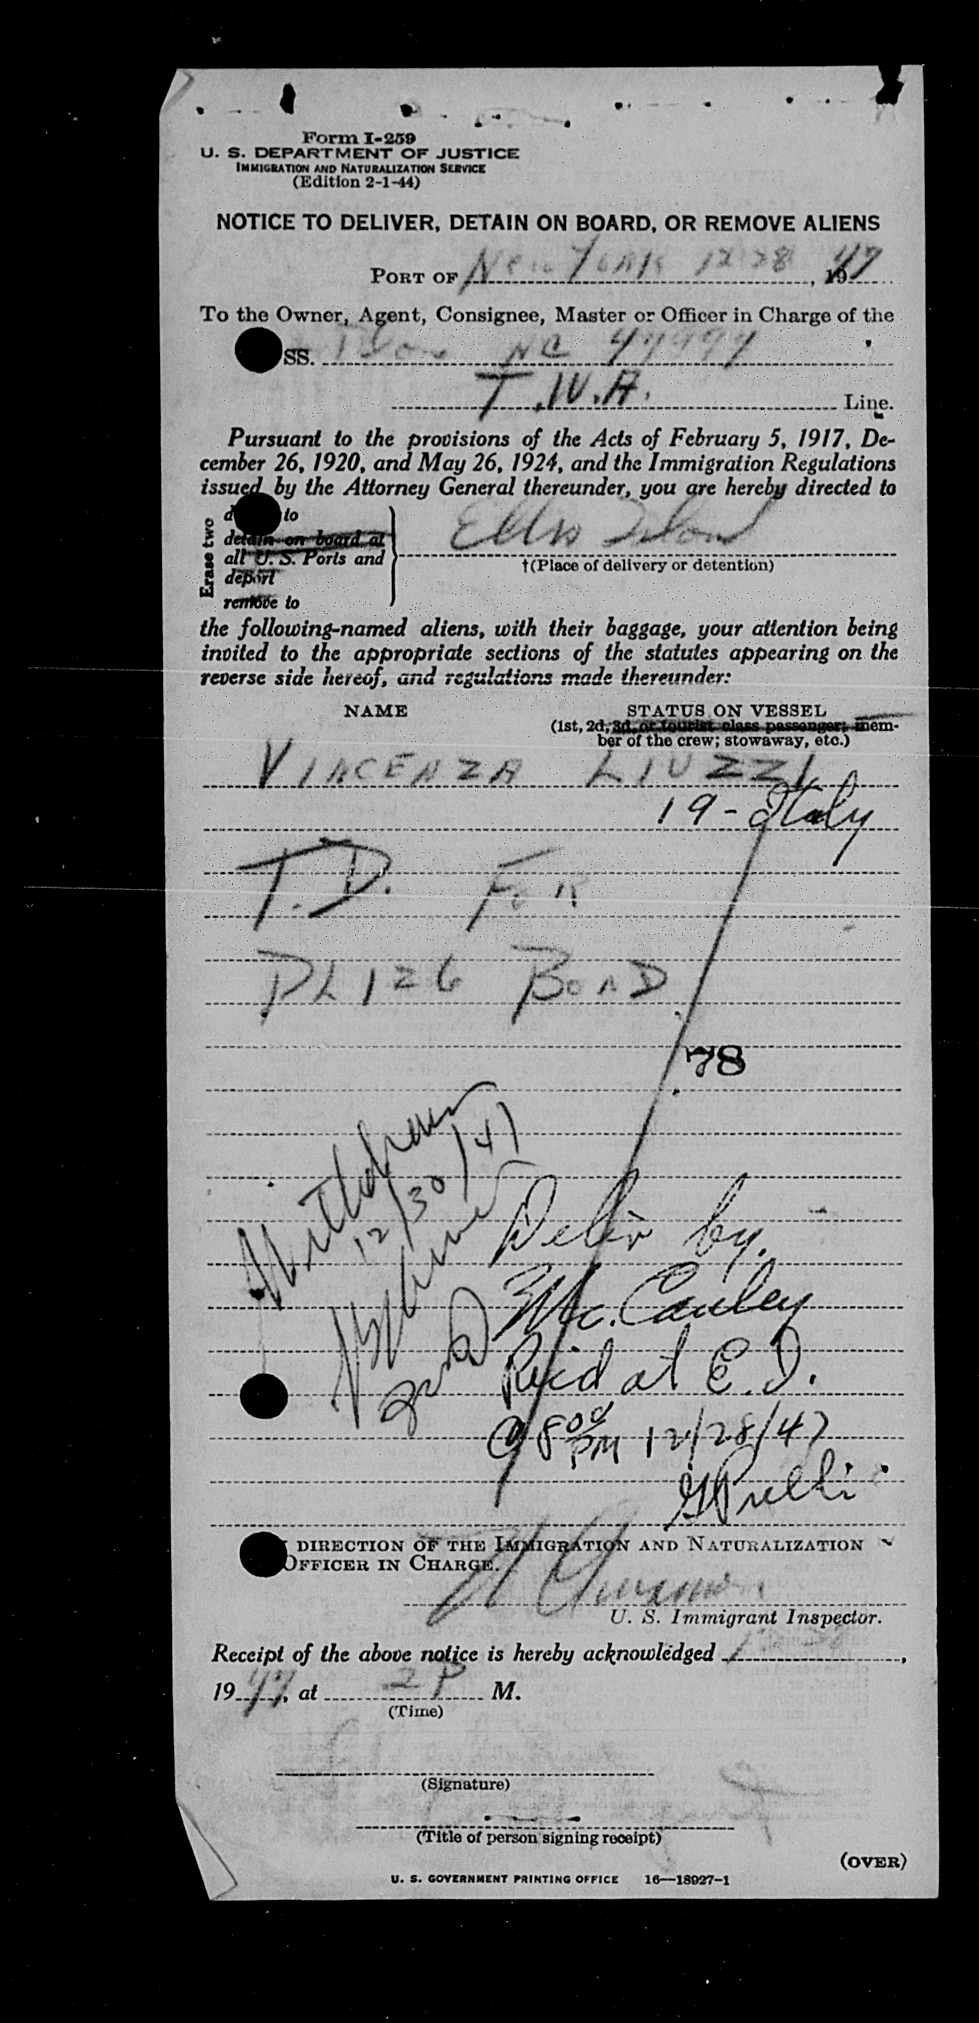 Form I-259
U. S. DEPARTMENT OF JUSTICE
IMMIGRATION AND NATURALIZATION SERVICE
(Edition 2-1-44)
NOTICE TO DELIVER, DETAIN ON BOARD, OR REMOVE ALIENS
PORT OF New York 12 28, 1947
To the Owner, Agent, Consignee, Master or Officer in Charge of the
SS. NC
T.W.A. Line.
Pursuant to the provisions of the Acts of February 5, 1917, De-
cember 26, 1920, and May 26, 1924, and the Immigration Regulations
issued by the Attorney General thereunder, you are hereby directed to
Erase two
to
detain on board at
all U. S. Ports and
deport
remove to
Ellis Island
†(Place of delivery or detention)
the following-named aliens, with their baggage, your attention being
invited to the appropriate sections of the statutes appearing on the
reverse side hereof, and regulations made thereunder:
NAME STATUS ON VESSEL
(1st, 2d, 3d, or tourist class passenger; mem-
ber of the crew; stowaway, etc.)
VINCENZA LIUZZI
19 - Italy
T.D. FOR
PL 126 BOND
78
Withdrawn
12/30/47
Deliv by.
Mc. Cauley
Rec'd at E.I.
@ 8 00 PM 12/28/47
DIRECTION OF THE IMMIGRATION AND NATURALIZATION
OFFICER IN CHARGE.
U. S. Immigrant Inspector.
Receipt of the above notice is hereby acknowledged
1947, at 2 P M.
(Time)
(Signature)
(Title of person signing receipt)
(OVER)
U. S. GOVERNMENT PRINTING OFFICE 16—18927-1